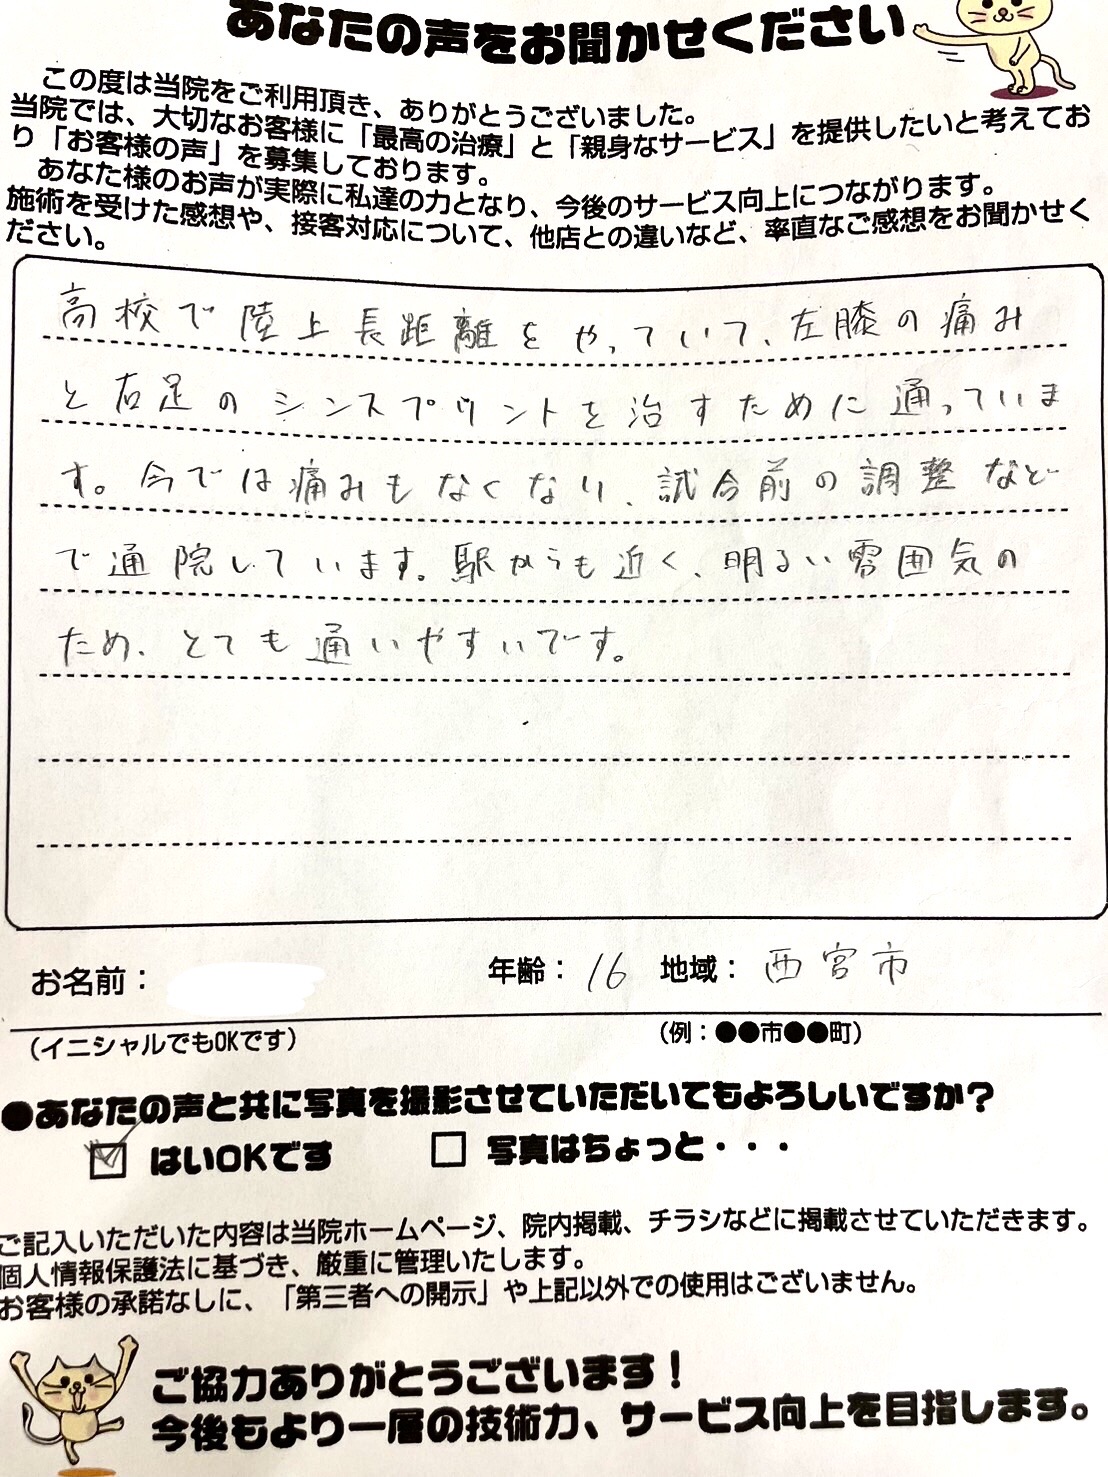 あなたの声をお聞かせください
この度は当院をご利用頂き、ありがとうございました。
当院では、大切なお客様に「最高の治療」と「親身なサービス」を提供したいと考えてお
り「お客様の声」を募集しております。
あなた様のお声が実際に私達の力となり、今後のサービス向上につながります。
施術を受けた感想や、接客対応について、他店との違いなど、率直なご感想をお聞かせく
ださい。
高校で陸上長距離をやっていて、左膝の痛み
と右足のシンスプリントを治すために通っていま
す。今では痛みもなくなり、試合前の調整など
で通院しています。駅からも近く、明るい雰囲気の
ため、とても通いやすいです。
お名前： 年齢：16 地域：西宮市
（イニシャルでもOKです） （例：●●市●●町）
●あなたの声と共に写真を撮影させていただいてもよろしいですか？
はいOKです 写真はちょっと・・・
ご記入いただいた内容は当院ホームページ、院内掲載、チラシなどに掲載させていただきます。
個人情報保護法に基づき、厳重に管理いたします。
お客様の承諾なしに、「第三者への開示」や上記以外での使用はございません。
ご協力ありがとうございます！
今後もより一層の技術力、サービス向上を目指します。